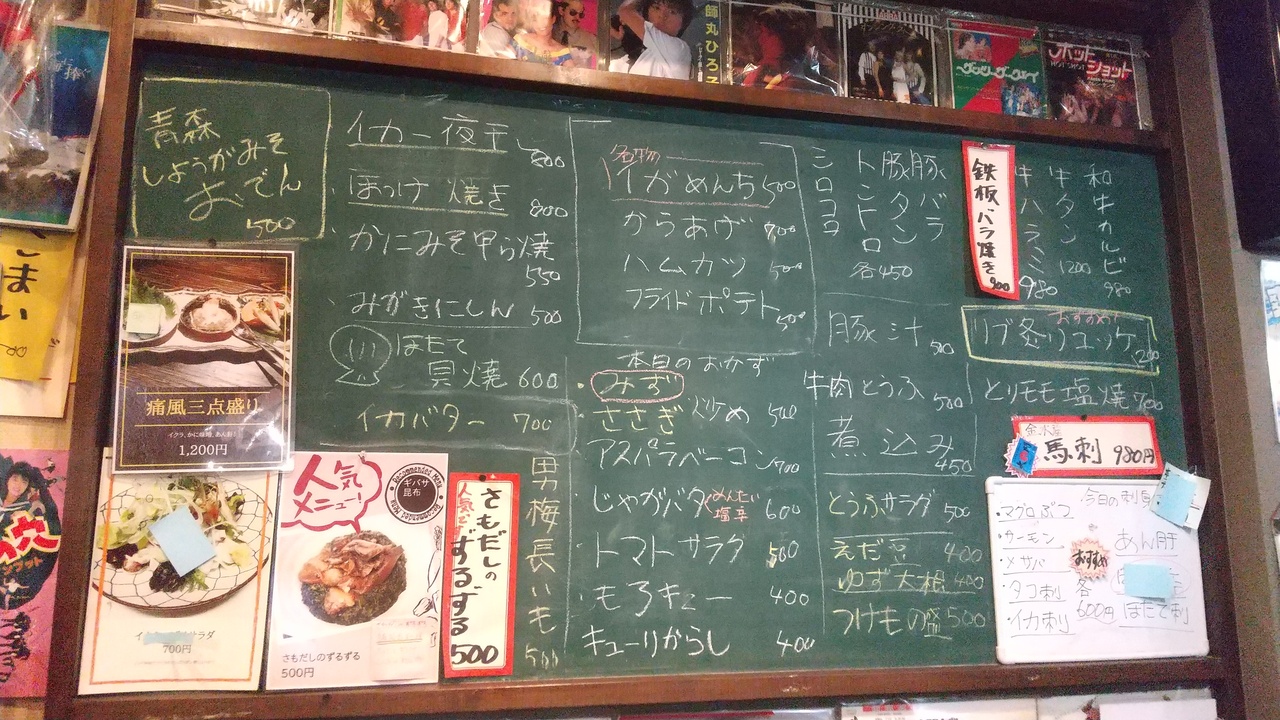 師丸ひろ子
ホットショット
青森
しょうがみそ
おでん
500
イカ一夜干
800
ほっけ焼き
800
かにみそ甲ら焼
550
みがきにしん 500
ほたて
貝焼 600
イカバター 700
名物
イガめんち 500
からあげ 700
ハムカツ 500
フライドポテト
500
本日のおかず
みず
ささぎ 炒め 500
アスパラベーコン 700
じゃがバタ めんたい 塩辛 600
トマトサラダ 500
もろキュー 400
キューリからし 400
男梅長いも
500
シロコロ
トントロ
豚タン
豚バラ
各450
豚汁 500
牛肉とうふ 500
煮込み
450
とうふサラダ 500
えだ豆 400
ゆず大根 400
つけもの盛 500
鉄板バラ焼き
900
牛ハラミ
980
牛タン
1200
和牛カルビ
980
おすすめ!
リブ炙りユッケ
とりモモ塩焼 700
馬刺 980円
今日の刺身
・マグロぶつ
・サーモン
・〆サバ
・タコ刺
・イカ刺
おすすめ
各
600円
あん肝
ほたて刺
痛風三点盛り
1,200円
700円
人気
メニュー!
ギバサ
昆布
さもだしのずるずる
500円
さもだしの
人気です
ずるずる
500